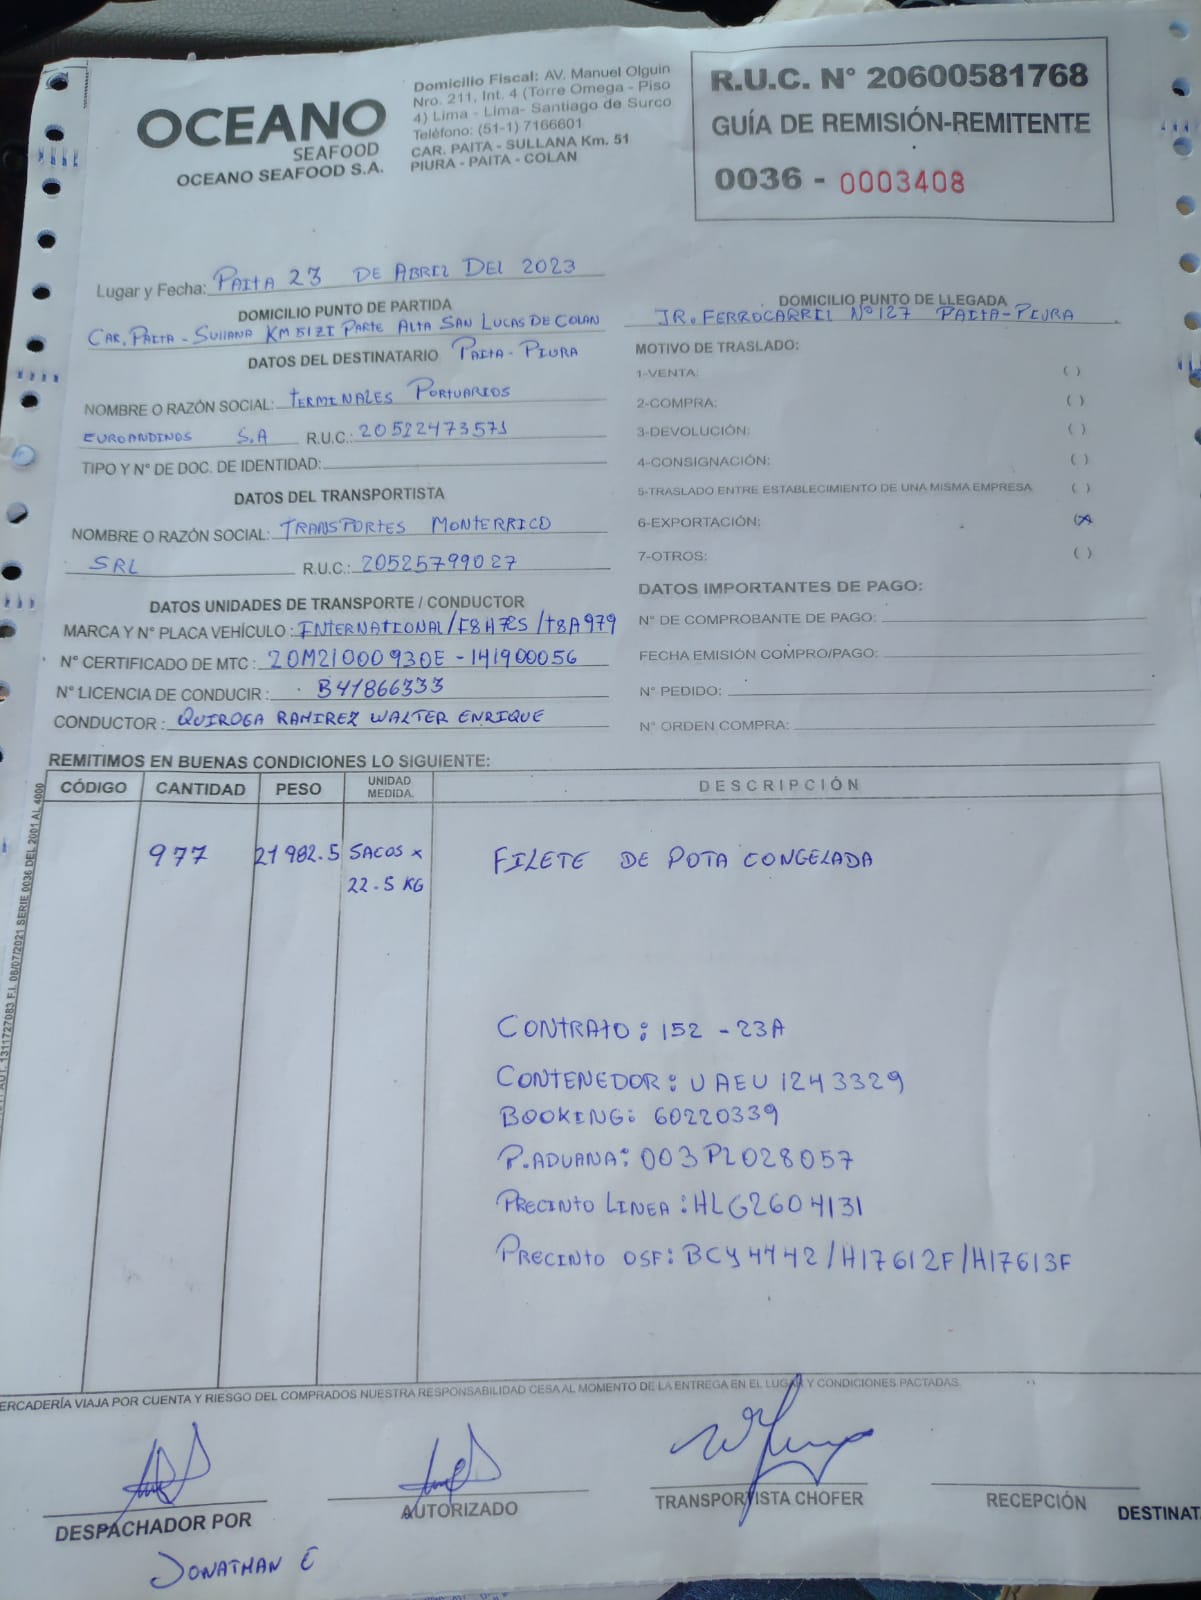 OCEANO
SEAFOOD
OCEANO SEAFOOD S.A.
Domicilio Fiscal: AV. Manuel Olguin
Nro. 211, Int. 4 (Torre Omega - Piso
4) Lima - Lima- Santiago de Surco
Teléfono: (51-1) 7166601
CAR. PAITA - SULLANA Km. 51
PIURA - PAITA - COLAN
R.U.C. N° 20600581768
GUÍA DE REMISIÓN-REMITENTE
0036 - 0003408
Lugar y Fecha: PAITA 23 DE ABRIL DEL 2023
DOMICILIO PUNTO DE PARTIDA
CAR. PAITA - SULLANA KM 51 ZI PARTE ALTA SAN LUCAS DE COLAN
PAITA - PIURA
DOMICILIO PUNTO DE LLEGADA
JR. FERROCARRIL N°127 PAITA-PIURA
DATOS DEL DESTINATARIO
NOMBRE O RAZÓN SOCIAL: TERMINALES PORTUARIOS
EUROANDINOS S.A R.U.C.: 20522473571
TIPO Y N° DE DOC. DE IDENTIDAD:
DATOS DEL TRANSPORTISTA
NOMBRE O RAZÓN SOCIAL: TRANSPORTES MONTERRICO
SRL R.U.C.: 20525799027
DATOS UNIDADES DE TRANSPORTE / CONDUCTOR
MARCA Y N° PLACA VEHÍCULO: INTERNATIONAL/ /T8A979
N° CERTIFICADO DE MTC: 20M21000930E - 141900056
N° LICENCIA DE CONDUCIR: B41866333
CONDUCTOR: QUIROGA RAMIREZ WALTER ENRIQUE
MOTIVO DE TRASLADO:
1-VENTA: ( )
2-COMPRA: ( )
3-DEVOLUCIÓN: ( )
4-CONSIGNACIÓN: ( )
5-TRASLADO ENTRE ESTABLECIMIENTO DE UNA MISMA EMPRESA ( )
6-EXPORTACIÓN: (X)
7-OTROS: ( )
DATOS IMPORTANTES DE PAGO:
N° DE COMPROBANTE DE PAGO:
FECHA EMISIÓN COMPRO/PAGO:
N° PEDIDO:
N° ORDEN COMPRA:
REMITIMOS EN BUENAS CONDICIONES LO SIGUIENTE:
CÓDIGO CANTIDAD PESO UNIDAD MEDIDA. DESCRIPCIÓN
977 21982.5 SACOS x FILETE DE POTA CONGELADA
22.5 KG
CONTRATO: 152 - 23A
CONTENEDOR: UAEU 1243329
BOOKING: 60220339
P.ADUANA: 003PL028057
PRECINTO LINEA: HLG2604131
PRECINTO OSF: BCY4742/H17612F/H17613F
AUT. 1311727083 F.I. 08/07/2021 SERIE 0036 DEL 2001 AL 4000
ERCADERÍA VIAJA POR CUENTA Y RIESGO DEL COMPRADOS NUESTRA RESPONSABILIDAD CESA AL MOMENTO DE LA ENTREGA EN EL LUGAR Y CONDICIONES PACTADAS.
DESPACHADOR POR
JONATHAN C
AUTORIZADO
TRANSPORTISTA CHOFER
RECEPCIÓN
DESTINAT